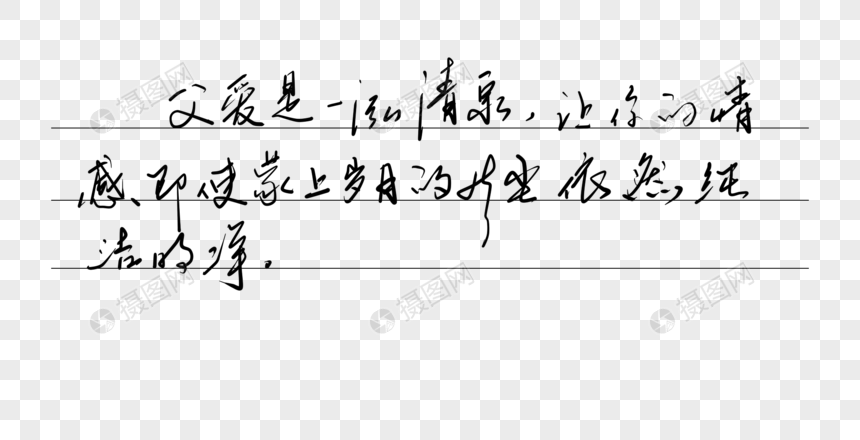 父爱是一泓清泉，让你的情
感、即使蒙上岁月的风尘依然纯
洁明净。
摄图网
摄图网
摄图网
摄图网
摄图网
摄图网